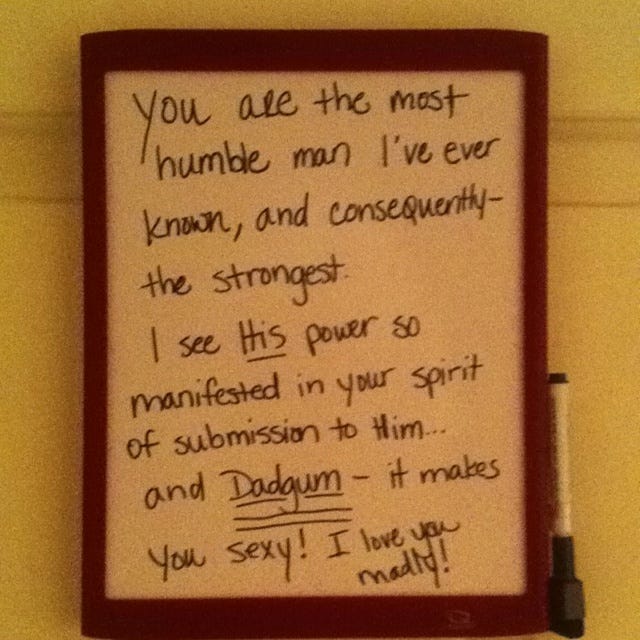 You are the most
humble man I've ever
known, and consequently-
the strongest.
I see His power so
manifested in your spirit
of submission to Him...
and Dadgum - it makes
you sexy! I love you
madly!